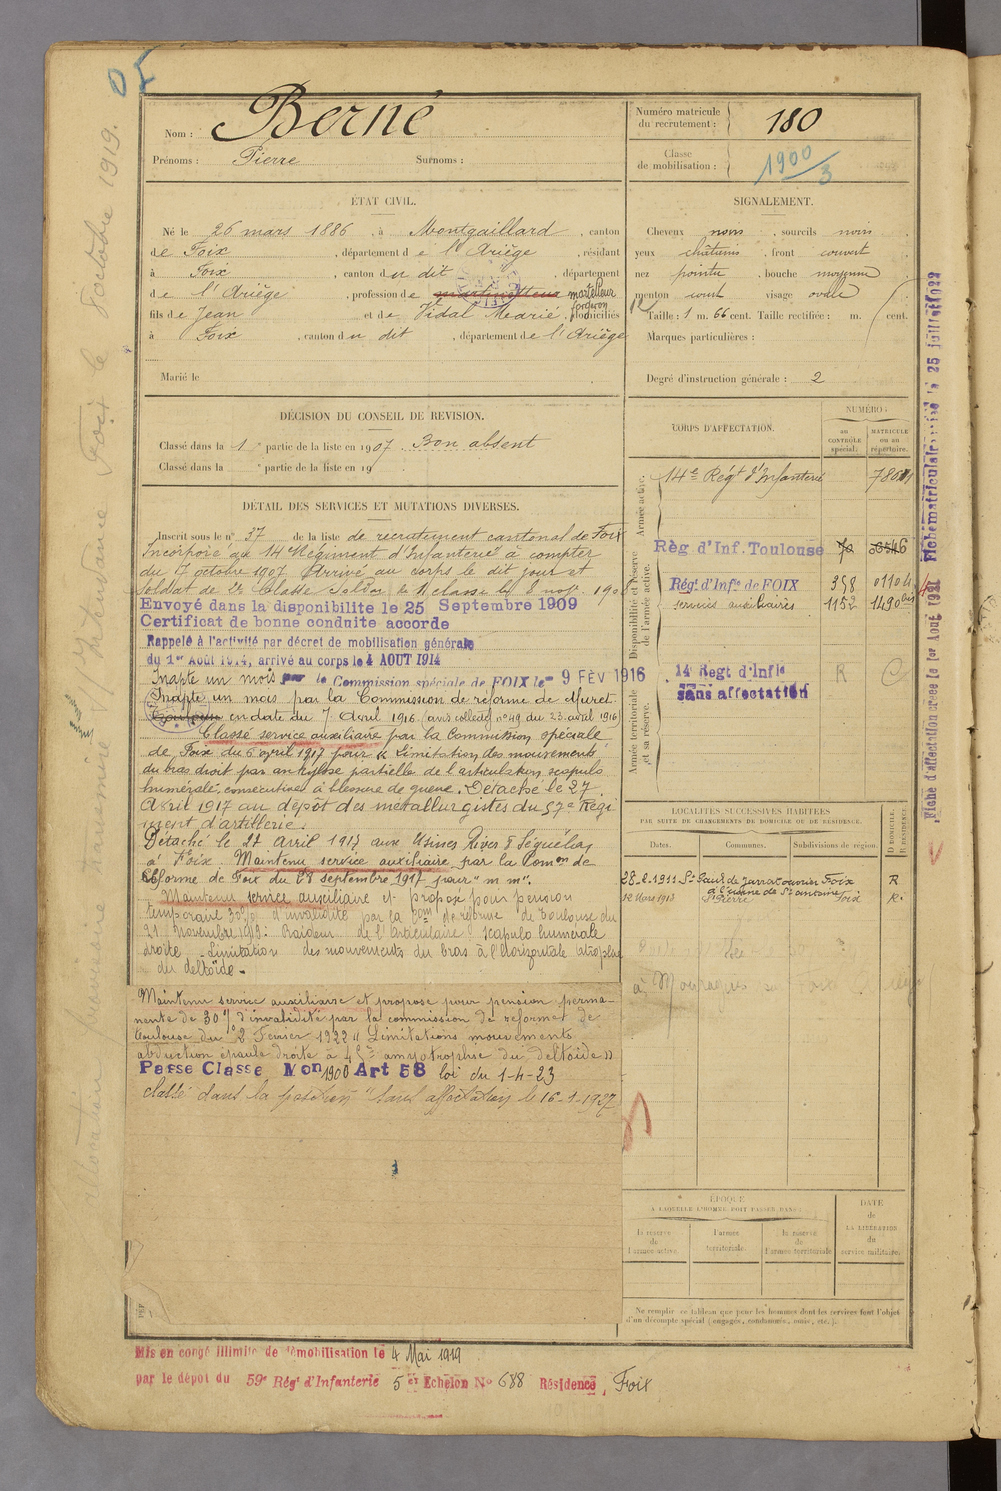 Nom : Berné
Prénoms : Pierre Surnoms :
Numéro matricule du recrutement : 180
Classe de mobilisation : 1900/3
ÉTAT CIVIL.
Né le 26 mars 1886, à Montgaillard, canton
de Foix, département de l'Ariège, résidant
à Foix, canton du dit, département
de l'Ariège, profession de marteleur forgeron
fils de Jean et de Vidal Marie, domiciliés
à Foix, canton du dit, département de l'Ariège
Marié le
SIGNALEMENT.
Cheveux noirs, sourcils noirs
yeux châtains, front couvert
nez pointu, bouche moyenne
menton rond visage ovale
Taille : 1 m. 66 cent. Taille rectifiée : m. cent.
Marques particulières :
Degré d'instruction générale : 2
DÉCISION DU CONSEIL DE REVISION.
Classé dans la 1e partie de la liste en 1907. Bon absent
Classé dans la e partie de la liste en 19
DÉTAIL DES SERVICES ET MUTATIONS DIVERSES.
Inscrit sous le n° 37 de la liste de recrutement cantonal de Foix
Incorporé au 14e Régiment d'Infanterie à compter
du 7 octobre 1907. Arrivé au corps le dit jour et
soldat de 2e classe. Soldat de 1e classe le 8 nov. 1908
Envoyé dans la disponibilite le 25 Septembre 1909
Certificat de bonne conduite accorde
Rappelé à l'activité par décret de mobilisation générale
du 1er Août 1914, arrivé au corps le 4 AOUT 1914
Inapte un mois par la Commission spéciale de FOIX le 9 FÉV 1916
Inapte un mois par la Commission de réforme de Muret
en date du 7 Avril 1916. (avis collectif n° 49 du 23 avril 1916)
Classé service auxiliaire par la Commission spéciale
de Foix du 6 avril 1917 pour "Limitation des mouvements
du bras droit par ankylose partielle de l'articulation scapulo
humérale, consécutive à blessure de guerre. Détaché le 27
Avril 1917 au dépôt des métallurgistes du 57e Régi
ment d'artillerie.
Détaché le 27 Avril 1917 aux Usines Rives & Séguélas
à Foix. Maintenu service auxiliaire par la Comon de
réforme de Foix du 28 septembre 1917 pour "m m".
Maintenu service auxiliaire et proposé pour pension
temporaire 30% d'invalidité par la Com de réforme de Toulouse du
21 novembre 1919 : Raideur de l'articulaire scapulo humérale
droite. Limitation des mouvements du bras à l'horizontale atrophie
du deltoïde -
Maintenu service auxiliaire et proposé pour pension perma-
nente de 30% d'invalidité par la commission de réforme de
Toulouse du 2 Février 1922 "Limitations mouvements
abduction épaule droite à 45° amyotrophie du deltoïde"
Passe Classe Mon 1900 Art 58 loi du 1-4-23
classé dans la position "sans affectation" le 16-1-1927
CORPS D'AFFECTATION.
NUMÉRO :
au CONTRÔLE spécial.
MATRICULE ou au répertoire.
Armée active.
14e Régt d'Infanterie
Disponibilité et réserve de l'armée active.
Règ d'Inf. Toulouse
Régt d'Infie de FOIX 358
services auxiliaires 1152 1490 bis
Armée territoriale et sa réserve.
14 Regt d'Infie R C
sans affectation
LOCALITÉS SUCCESSIVES HABITÉES
PAR SUITE DE CHANGEMENTS DE DOMICILE OU DE RÉSIDENCE.
Dates. Communes. Subdivisions de région. D DOMICILE. R RÉSIDENCE.
28-2-1911 St Paul de Jarrat ouvrier Foix R
à l'usine de St antoine
12 Mars 1913 St Pierre Foix R
ÉPOQUE
A LAQUELLE L'HOMME DOIT PASSER DANS :
la réserve de l'armée active.
l'armée territoriale.
la réserve de l'armée territoriale
DATE de LA LIBÉRATION du service militaire.
Ne remplir ce tableau que pour les hommes dont les services font l'objet
d'un décompte spécial (engagés, condamnés, omis, etc.).
Mis en congé illimité de démobilisation le 4 Mai 1919
par le dépôt du 59e Règt d'Infanterie 5er Echelon No 688 Résidence, Foix
Fiche d'affectation créée le 1er Aout 1921 Fiche matriculaire créée le 25 juillet 1922